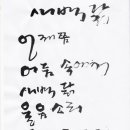 새벽 닭
어제 밤
어둠 속에서
새벽 닭
울음 소리